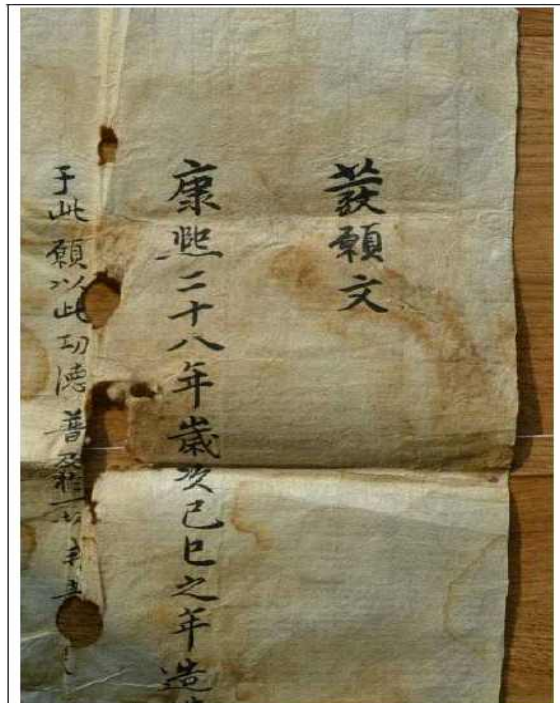 發願文
康熙二十八年歲次己巳之年造
于此 願以此功德 普及於一切